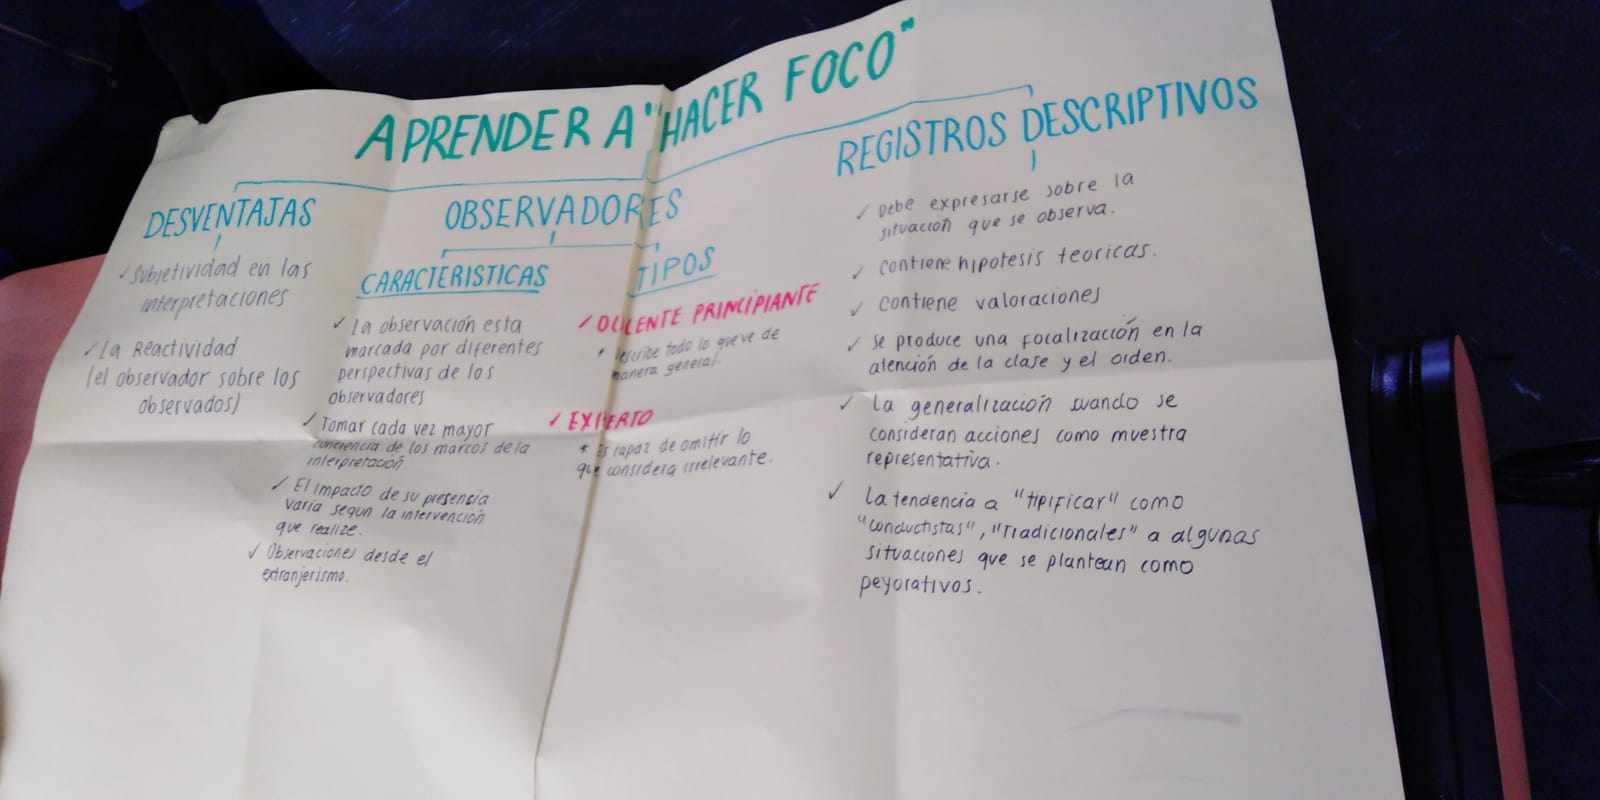 APRENDER A "HACER FOCO"
DESVENTAJAS
✓ Subjetividad en las
interpretaciones
✓ La Reactividad
(el observador sobre los
observados)
OBSERVADORES
CARACTERISTICAS
✓ La observación esta
marcada por diferentes
perspectivas de los
observadores
✓ Tomar cada vez mayor
conciencia de los marcos de la
interpretación.
✓ El impacto de su presencia
varia segun la intervención
que realize.
✓ Observaciones desde el
extranjerismo.
TIPOS
✓ DOCENTE PRINCIPIANTE
* Describe todo lo que ve de
manera general.
✓ EXPERTO
* Es capaz de omitir lo
que considera irrelevante.
REGISTROS DESCRIPTIVOS
✓ Debe expresarse sobre la
situación que se observa.
✓ Contiene hipotesis teoricas.
✓ Contiene valoraciones
✓ Se produce una focalización en la
atención de la clase y el orden.
✓ La generalización cuando se
consideran acciones como muestra
representativa.
✓ La tendencia a "tipificar" como
"conductistas", "Tradicionales" a algunas
situaciones que se plantean como
peyorativos.